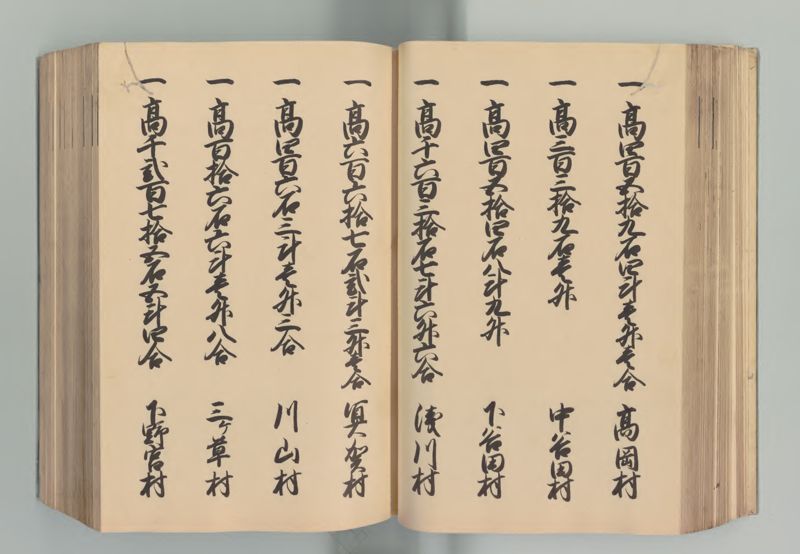 一 高四百五拾九石四斗壱升壱合 高岡村
一 高三百三拾九石壱升 中谷田村
一 高四百五拾四石八斗九升 下谷田村
一 高千六百三拾石七斗六升六合 浅川村
一 高六百六拾七石弐斗三升壱合 冥賀村
一 高四百六石三斗壱升二合 川山村
一 高百拾六石六斗壱升八合 三ケ草村
一 高千弐百七拾五石五斗四合 下野宮村